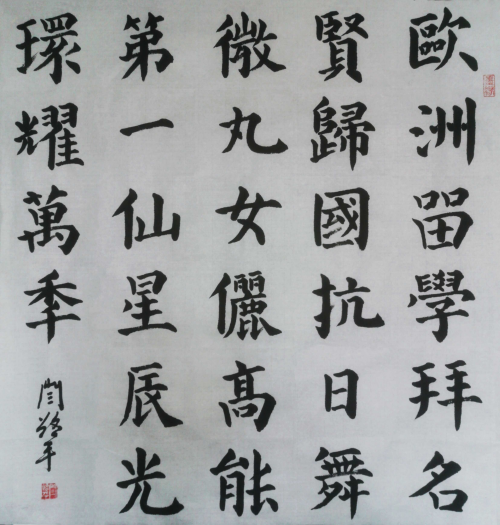 歐洲畱學拜名
賢歸國抗日舞
微丸女儷高能
第一仙星辰光
環耀萬季
閆
平